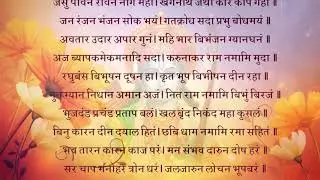 जसु पावन रावन नाग महा। खगनाथ जथा करि कोप गहा॥
जन रंजन भंजन सोक भयं। गतक्रोध सदा प्रभु बोधमयं॥
अवतार उदार अपार गुनं। महि भार बिभंजन ग्यानघनं॥
अज ब्यापकमेकमनादि सदा। करुनाकर राम नमामि मुदा॥
रघुबंस बिभूषन दूषन हा। कृत भूप बिभीषन दीन रहा॥
गुन ग्यान निधान अमान अजं। नित राम नमामि बिभुं बिरजं॥
भुजदंड प्रचंड प्रताप बलं। खल बृंद निकंद महा कुसलं॥
बिनु कारन दीन दयाल हितं। छबि धाम नमामि रमा सहितं॥
भव तारन कारन काज परं। मन संभव दारुन दोष हरं॥
सर चाप मनोहर त्रोन धरं। जलजारुन लोचन भूपबरं॥